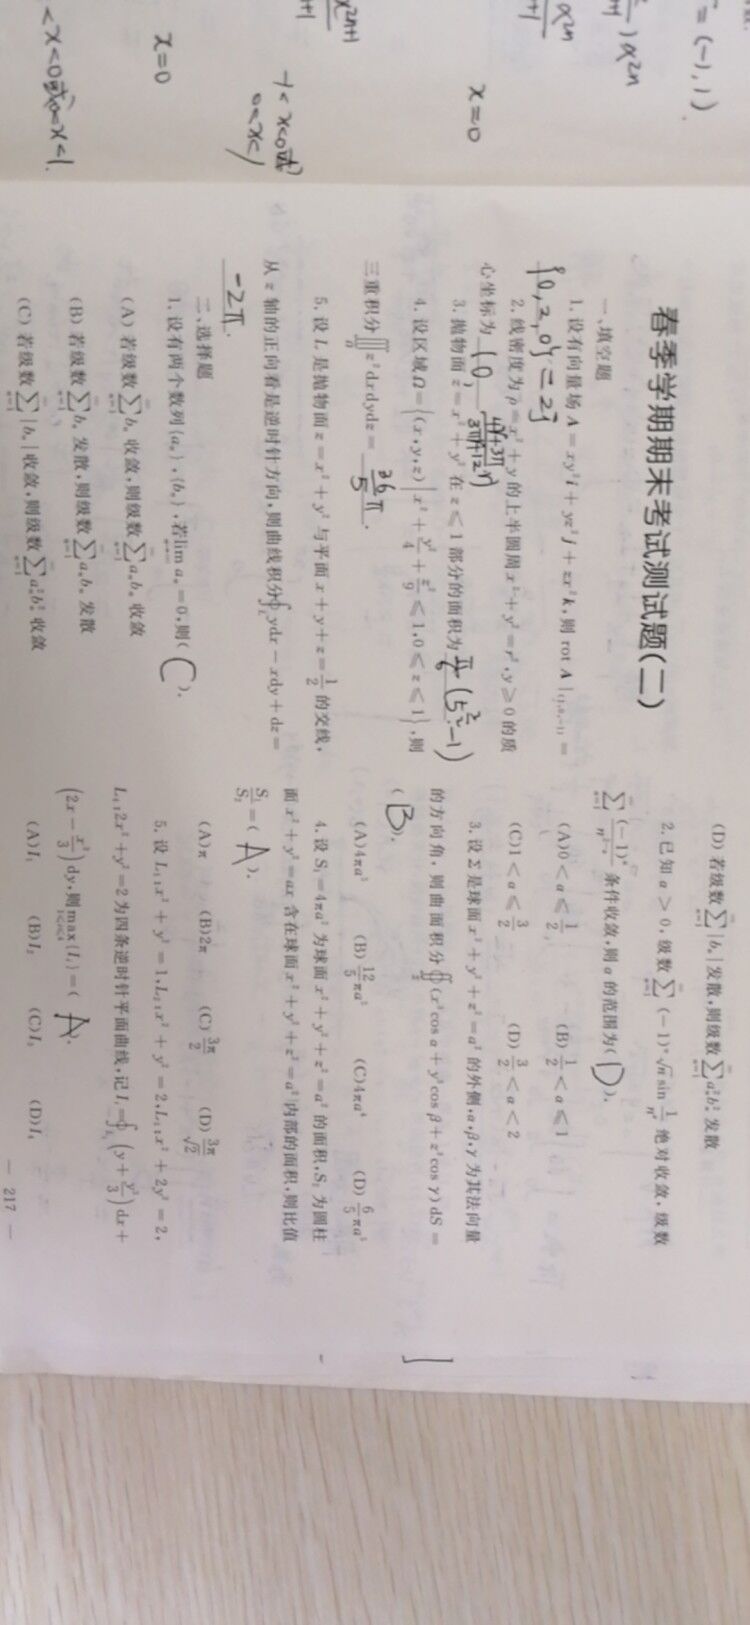 = (-1, 1)
x=0
-1<x<0或
0<x<1
x=0
<x<0或0<x<1.
春季学期期末考试测试题(二)
一、填空题
1. 设有向量场 A = xy²i + yz²j + zx²k, 则 rot A |₍₁,₀,₋₁₎ =
{0, 2, 0} = 2j
2. 线密度为 ρ = x² + y 的上半圆周 x² + y² = r², y ≥ 0 的质
心坐标为 (0, (4r+3π)/(3πr+12) r)
3. 抛物面 z = x² + y² 在 z ≤ 1 部分的面积为 π/6 (5^(3/2) - 1)
4. 设区域 Ω = {(x, y, z) | x² + y²/4 + z²/9 ≤ 1, 0 ≤ z ≤ 1}, 则
三重积分 ∭_Ω z² dxdydz = 36/5 π.
5. 设 L 是抛物面 z = x² + y² 与平面 x + y + z = 1/2 的交线,
从 z 轴的正向看是逆时针方向, 则曲线积分 ∮_L ydx - xdy + dz =
-2π.
二、选择题
1. 设有两个数列 {aₙ}, {bₙ}, 若 lim_{n→∞} aₙ = 0, 则( C ).
(A) 若级数 ∑_{n=1}^∞ bₙ 收敛, 则级数 ∑_{n=1}^∞ aₙbₙ 收敛
(B) 若级数 ∑_{n=1}^∞ bₙ 发散, 则级数 ∑_{n=1}^∞ aₙbₙ 发散
(C) 若级数 ∑_{n=1}^∞ |bₙ| 收敛, 则级数 ∑_{n=1}^∞ aₙ²bₙ² 收敛
(D) 若级数 ∑_{n=1}^∞ |bₙ| 发散, 则级数 ∑_{n=1}^∞ aₙ²bₙ² 发散
2. 已知 α > 0, 级数 ∑_{n=1}^∞ (-1)ⁿ √n sin 1/n^α 绝对收敛, 级数
∑_{n=1}^∞ (-1)ⁿ/n^(2-α) 条件收敛, 则 α 的范围为( D ).
(A) 0 < α ≤ 1/2 (B) 1/2 < α ≤ 1
(C) 1 < α ≤ 3/2 (D) 3/2 < α < 2
3. 设 Σ 是球面 x² + y² + z² = a² 的外侧, α, β, γ 为其法向量
的方向角, 则曲面积分 ∯_Σ (x³cos α + y³cos β + z³cos γ) dS =
( B ).
(A) 4πa⁵ (B) 12/5 πa⁵ (C) 4πa⁴ (D) 6/5 πa⁵
4. 设 S₁ = 4πa² 为球面 x² + y² + z² = a² 的面积, S₂ 为圆柱
面 x² + y² = ax 含在球面 x² + y² + z² = a² 内部的面积, 则比值
S₁/S₂ = ( A ).
(A) π (B) 2π (C) 3π/2 (D) 3π/√2
5. 设 L₁: x² + y² = 1, L₂: x² + y² = 2, L₃: x² + 2y² = 2,
L₄: 2x² + y² = 2 为四条逆时针平面曲线, 记 Iᵢ = ∮_{Lᵢ} (y + y³/3) dx +
(2x - x³/3) dy, 则 max_{1≤i≤4} {Iᵢ} = ( A ).
(A) I₁ (B) I₂ (C) I₃ (D) I₄
— 217 —